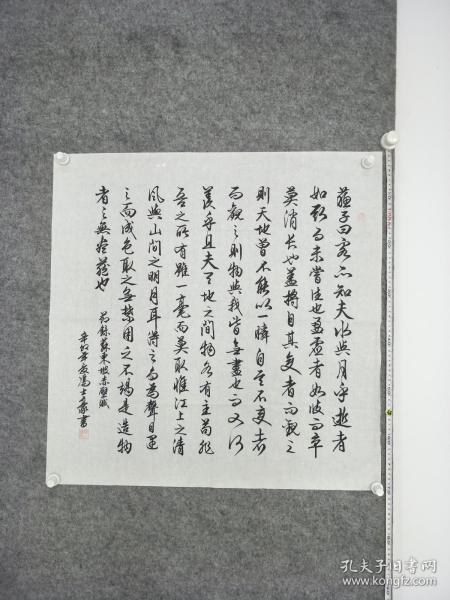 蘇子曰客亦知夫水與月乎逝者
如斯而未嘗往也盈虛者如彼而卒
莫消長也蓋將自其變者而觀之
則天地曾不能以一瞬自其不變者
而觀之則物與我皆無盡也而又何
羨乎且夫天地之間物各有主苟非
吾之所有雖一毫而莫取惟江上之清
風與山間之明月耳得之而為聲目遇
之而成色取之無禁用之不竭是造物
者之無盡藏也
節錄蘇東坡赤壁賦
書
孔夫子旧书网
www.kongfz.com